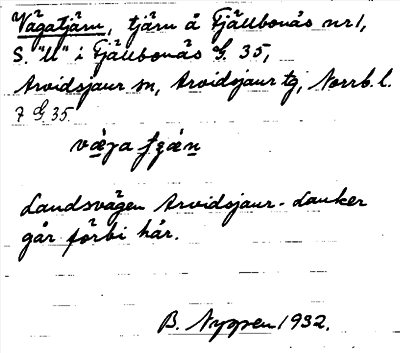 Vägatjärn, tjärn å Fjällbonäs nr 1,
S. "U" i Fjällbonäs G. 35,
Arvidsjaur sn, Arvidsjaur tg, Norrb. l.
7 G. 35.
Landsvägen Arvidsjaur - Lauker
går förbi här.
B. Nyppen 1932.